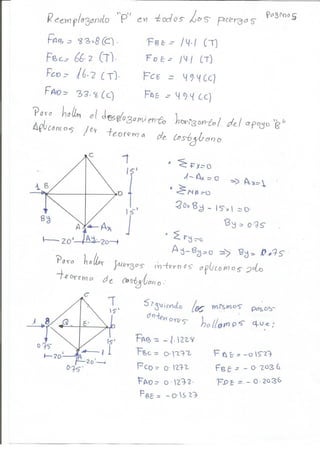 Reemplazando "P" en todos los fuerzas
Paginas
FAB = 83.8 (C). FBE = 141 (T)
FBC = 66.2 (T). FDE = 141 (T)
FCD = 16.2 (T). FCE = 494 (C)
FAD = 33.8 (C) FAE = 494 (C)
Para hallar el desplazamiento horizontal del apoyo "B"
Aplicamos 1er teorema de castigliano.
C
15'
1 B D
15'
By A Ax
20' Ay 20
• ΣFx=0
1-Ax=0 => Ax=1
• ΣMA=0
20*By - 15*1 = 0
By = 0.75
• ΣFy=0
Ay-By=0 => By= 0.75
Para hallar fuerzas internas aplicamos 2do
teorema de castigliano.
C
15'
B E D
15'
0.75 A 1
20' 20'
0.75
Siguiendo los mismos pasos
anteriores hallamos que:
FAB = -1.1228
FBC = 0.1272 FAE = -0.1527
FCD = 0.1272 FBE = -0.2036
FAD = 0.1272. FDE = -0.2036
FBE = -0.1527